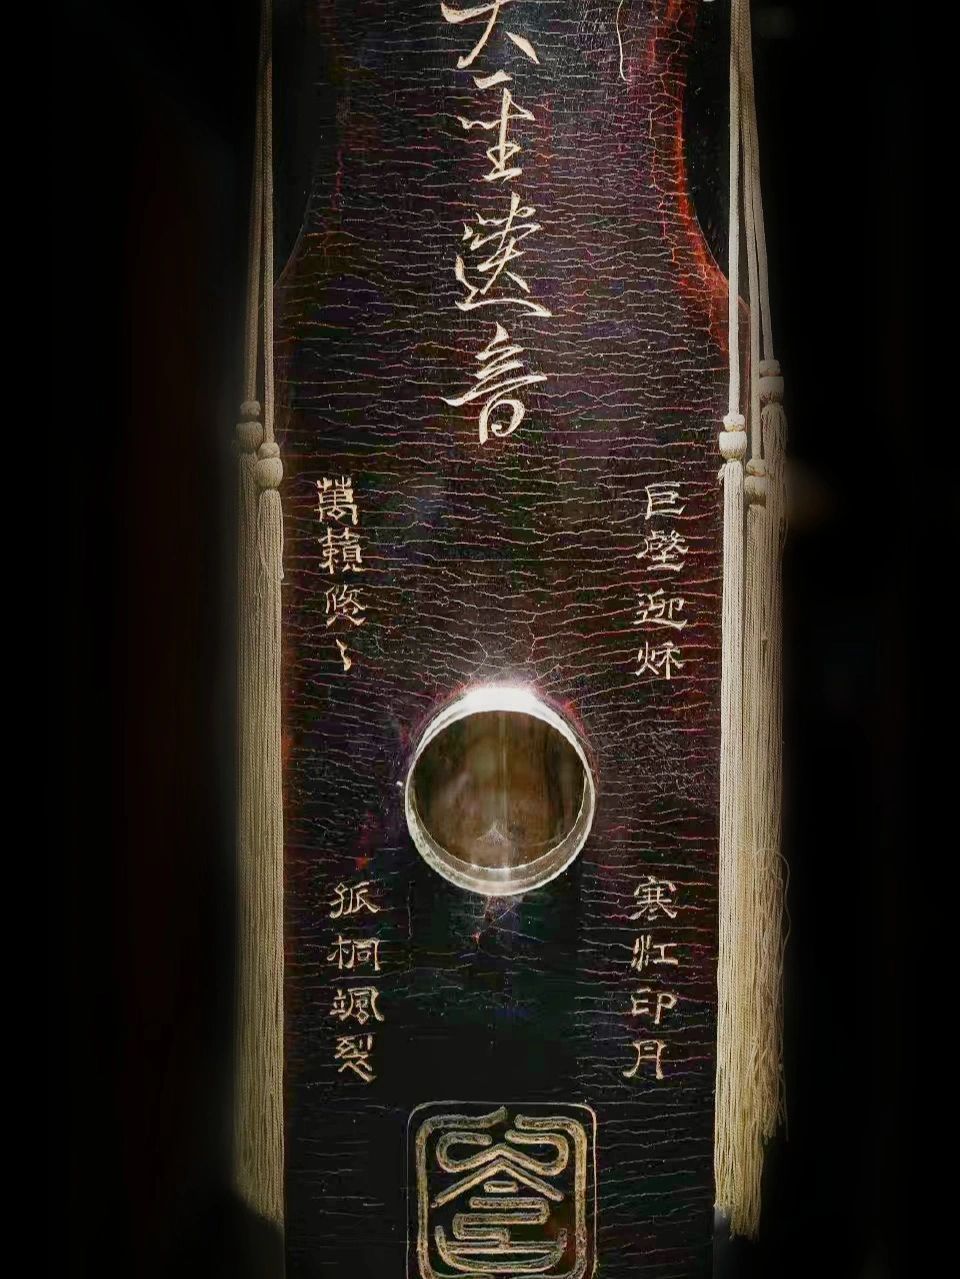 大聖遺音
巨壑迎秌
寒江印月
萬籟悠〻
孤桐颯裂